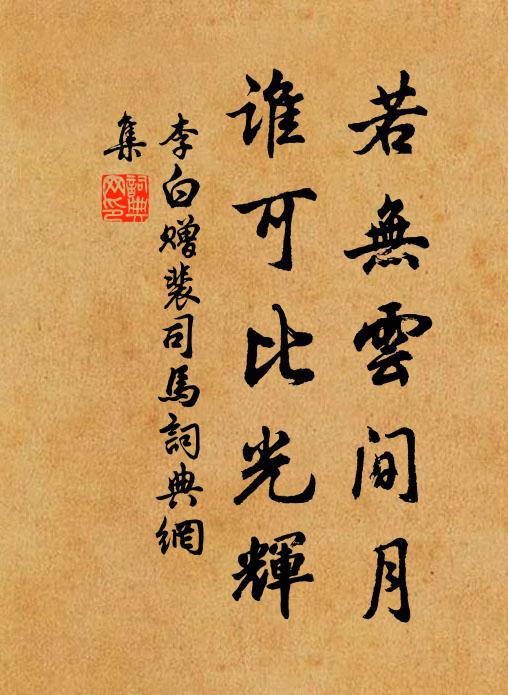 若無雲間月
谁可比光輝
李白赠裴司馬詞典網
集
詞典
网印